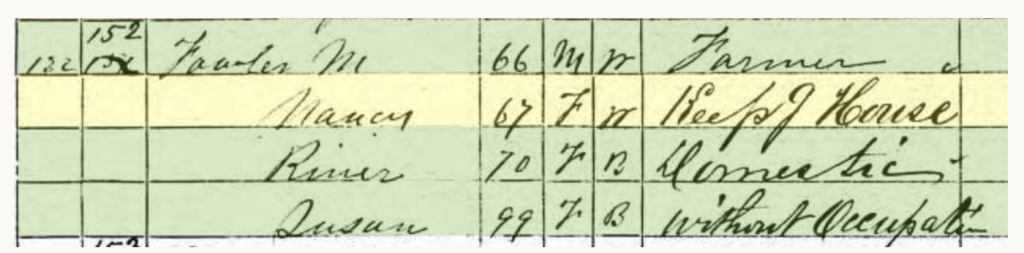 152
122 Fowler M 66 M W Farmer
Nancy 67 F W Keep'g House
River 70 F B Domestic
Susan 99 F B Without Occupation
152